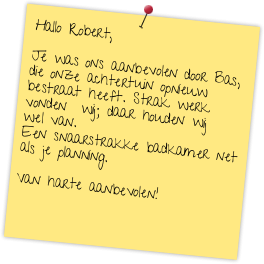 Hallo Robert,
Je was ons aanbevolen door Bas,
die onze achtertuin opnieuw
bestraat heeft. Strak werk
vonden wij; daar houden wij
wel van.
Een snaarstrakke badkamer net
als je planning.
van harte aanbevolen!